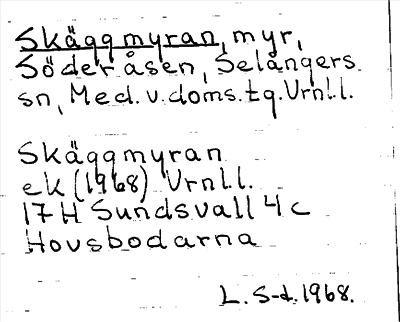 Skäggmyran, myr,
Söderåsen, Selångers
sn, Med.v.doms.tg.Vrnll.
Skäggmyran
ek (1968) Vrnll.
17 H Sundsvall 4 c
Hovsbodarna
L. S-d. 1968.